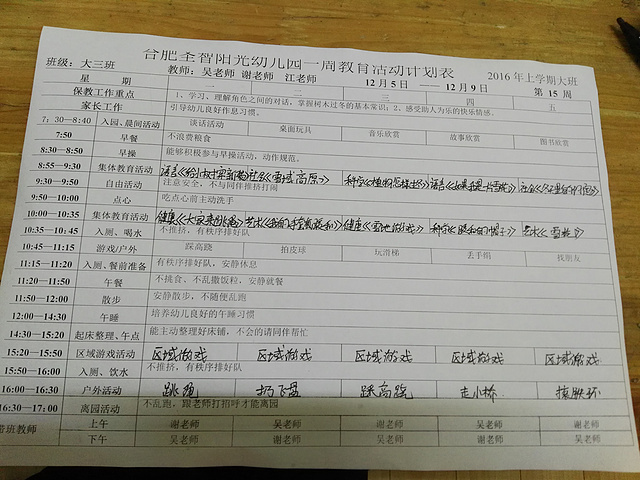 合肥全智阳光幼儿园一周教育活动计划表
班级：大三班 教师：吴老师 谢老师 江老师 12月5日——12月9日 2016年上学期大班 第15周
星 期 一 二 三 四 五
保教工作重点 1、学习、理解角色之间的对话，掌握树木过冬的基本常识；2、感受助人为乐的快乐情感。
家长工作 引导幼儿良好作息习惯。
7：30—8:40 入园、晨间活动 谈话活动 桌面玩具 音乐欣赏 故事欣赏 图书欣赏
7:50 早餐 不浪费粮食
8:30—8:50 早操 能够积极参与早操活动，动作规范。
8:55—9:30 集体教育活动 语言《给小树讲 社会《雪域高原》 科学《植物怎样过冬》 语言《如果我是一片雪花》 社会
9:30—9:50 自由活动 注意安全，不与同伴推挤打闹
9:50—10:00 点心 吃点心前主动洗手
10:00—10:35 集体教育活动 健康《大家来跳绳》 艺术 健康《雪地游戏》 科学 艺术《雪花》
10:35—10:45 入厕、喝水 不推挤，有秩序排好队
10:45—11:15 游戏/户外 踩高跷 拍皮球 玩滑梯 丢手绢 找朋友
11:15—11:20 入厕、餐前准备 有秩序排好队，安静休息
11:20—11:50 午餐 不挑食、不乱撒饭粒，安静就餐
11:50—12:00 散步 安静散步，不随便乱跑
12:00—14:30 午睡 培养幼儿良好的午睡习惯
14:30—15:20 起床整理、午点 能主动整理好床铺，不会的请同伴帮忙
15:20—15:50 区域游戏活动 区域游戏 区域游戏 区域游戏 区域游戏 区域游戏
15:50—16:00 入厕、饮水 不推挤，有秩序排好队
16:00—16:30 户外活动 跳绳 扔飞盘 踩高跷 走小桥 滚铁环
16:30—17:00 离园活动 不乱跑，跟老师打招呼才能离园
带班教师 上午 谢老师 吴老师 谢老师 吴老师 谢老师
下午 吴老师 谢老师 吴老师 谢老师 吴老师